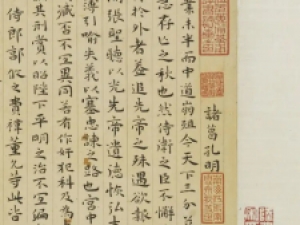 諸葛孔明
業未半而中道崩殂今天下三分益
急存亡之秋也然侍衛之臣不懈
於外者蓋追先帝之殊遇欲報
張聖聽以光先帝遺德恢弘
薄引喻失義以塞忠諫之路也宮中
臧否不宜異同若有作奸犯科及為
其刑賞以昭陛下平明之治不宜偏
侍郎郭攸之費禕董允等此皆